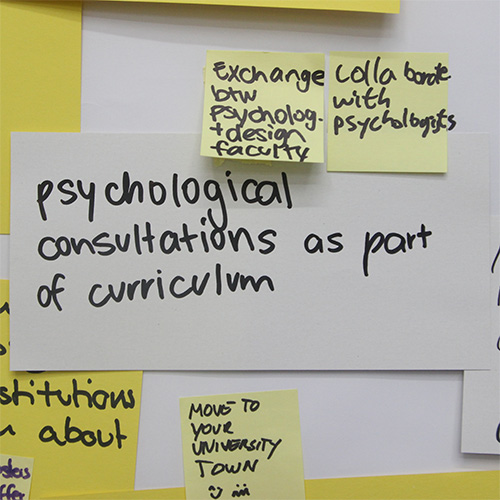 Exchange
btw
psycholog.
+design
faculty
Collaborate
with
psychologists
psychological
consultations as part
of curriculum
stitutions
about
MOVE TO
YOUR
UNIVERSITY
TOWN